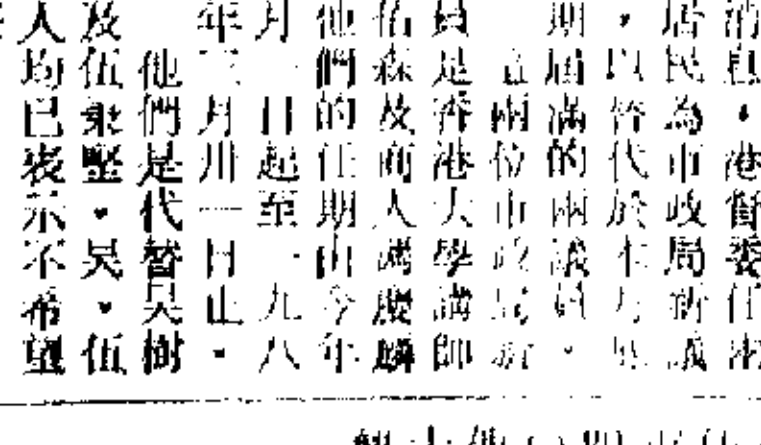 消息，港督委任兩
居民為市政局新議
，以替代於本月
期屆滿的兩議員。
這兩位市政局新
員是香港大學講師
佑森及商人馮慶麟
他們的任期由今年
月一日起至一九八
年三月卅一日止。
他們是代替吳樹
及伍秉堅。吳、伍
人均已表示不希望